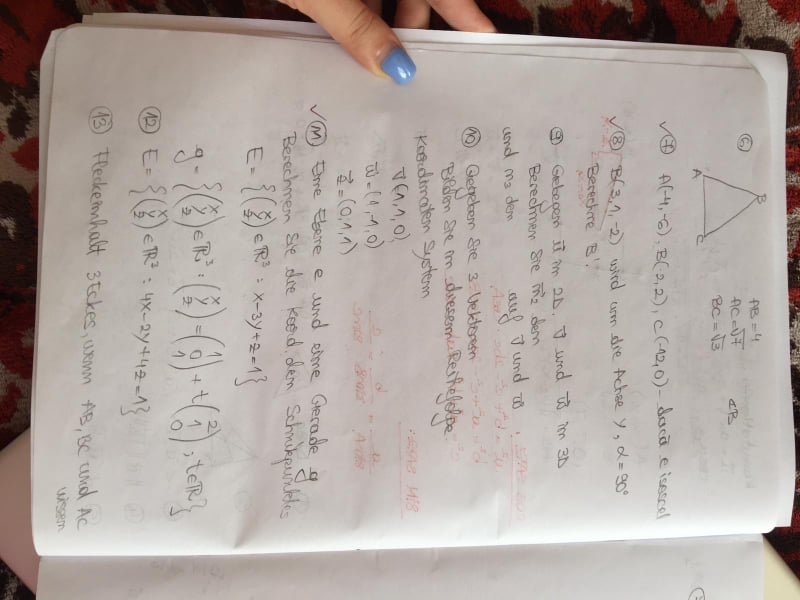 ⑥ B
A C
AB = 4
AC = √7
BC = √3
∢B
✓⑦ A(-4,-6), B(-2,2), C(-12,0) - dacă e isoscel
✓⑧ B(3,1,-2) wird um die Achse y, α=90°
Berechne B'.
⑨ Gebegen u⃗ im 2D. v⃗ und w⃗ im 3D
Berechnen Sie n⃗₂ dem
und n₃ dem auf v⃗ und w⃗
⑩ Gegeben Sie 3 Vektoren
Bilden Sie in diesem Reihefolge
Koordinaten System
v⃗(1,1,0),
w⃗=(1,-1,0)
z⃗=(0,1,1)
✓⑪ Eine Ebene e und eine Gerade g
Berechnen Sie die Koord. dem Schnikpunktes
E = {(x y z) ∈ ℝ³ : x-3y+z=1}
g = {(x y z) ∈ ℝ³ : (x y z) = (1 0 1) + t(2 1 0) ; t∈ℝ}
⑫ E = {(x y z) ∈ ℝ³ : 4x-2y+4z=1}
⑬ Fleckeinhalt 3Eckes, wenn AB, BC und AC
wissen